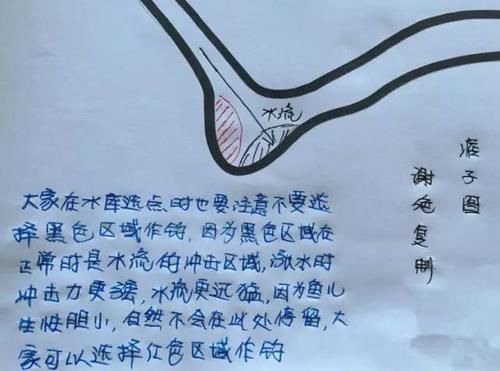 水流
痞子图
谢绝复制
大家在水库选点时也要注意不要选
择黑色区域作钓，因为黑色区域在
正常时是水流的冲击区域，涨水时
冲击力更强，水流更迅猛，因为鱼儿
生性胆小，自然不会在此处停留，大
家可以选择红色区域作钓